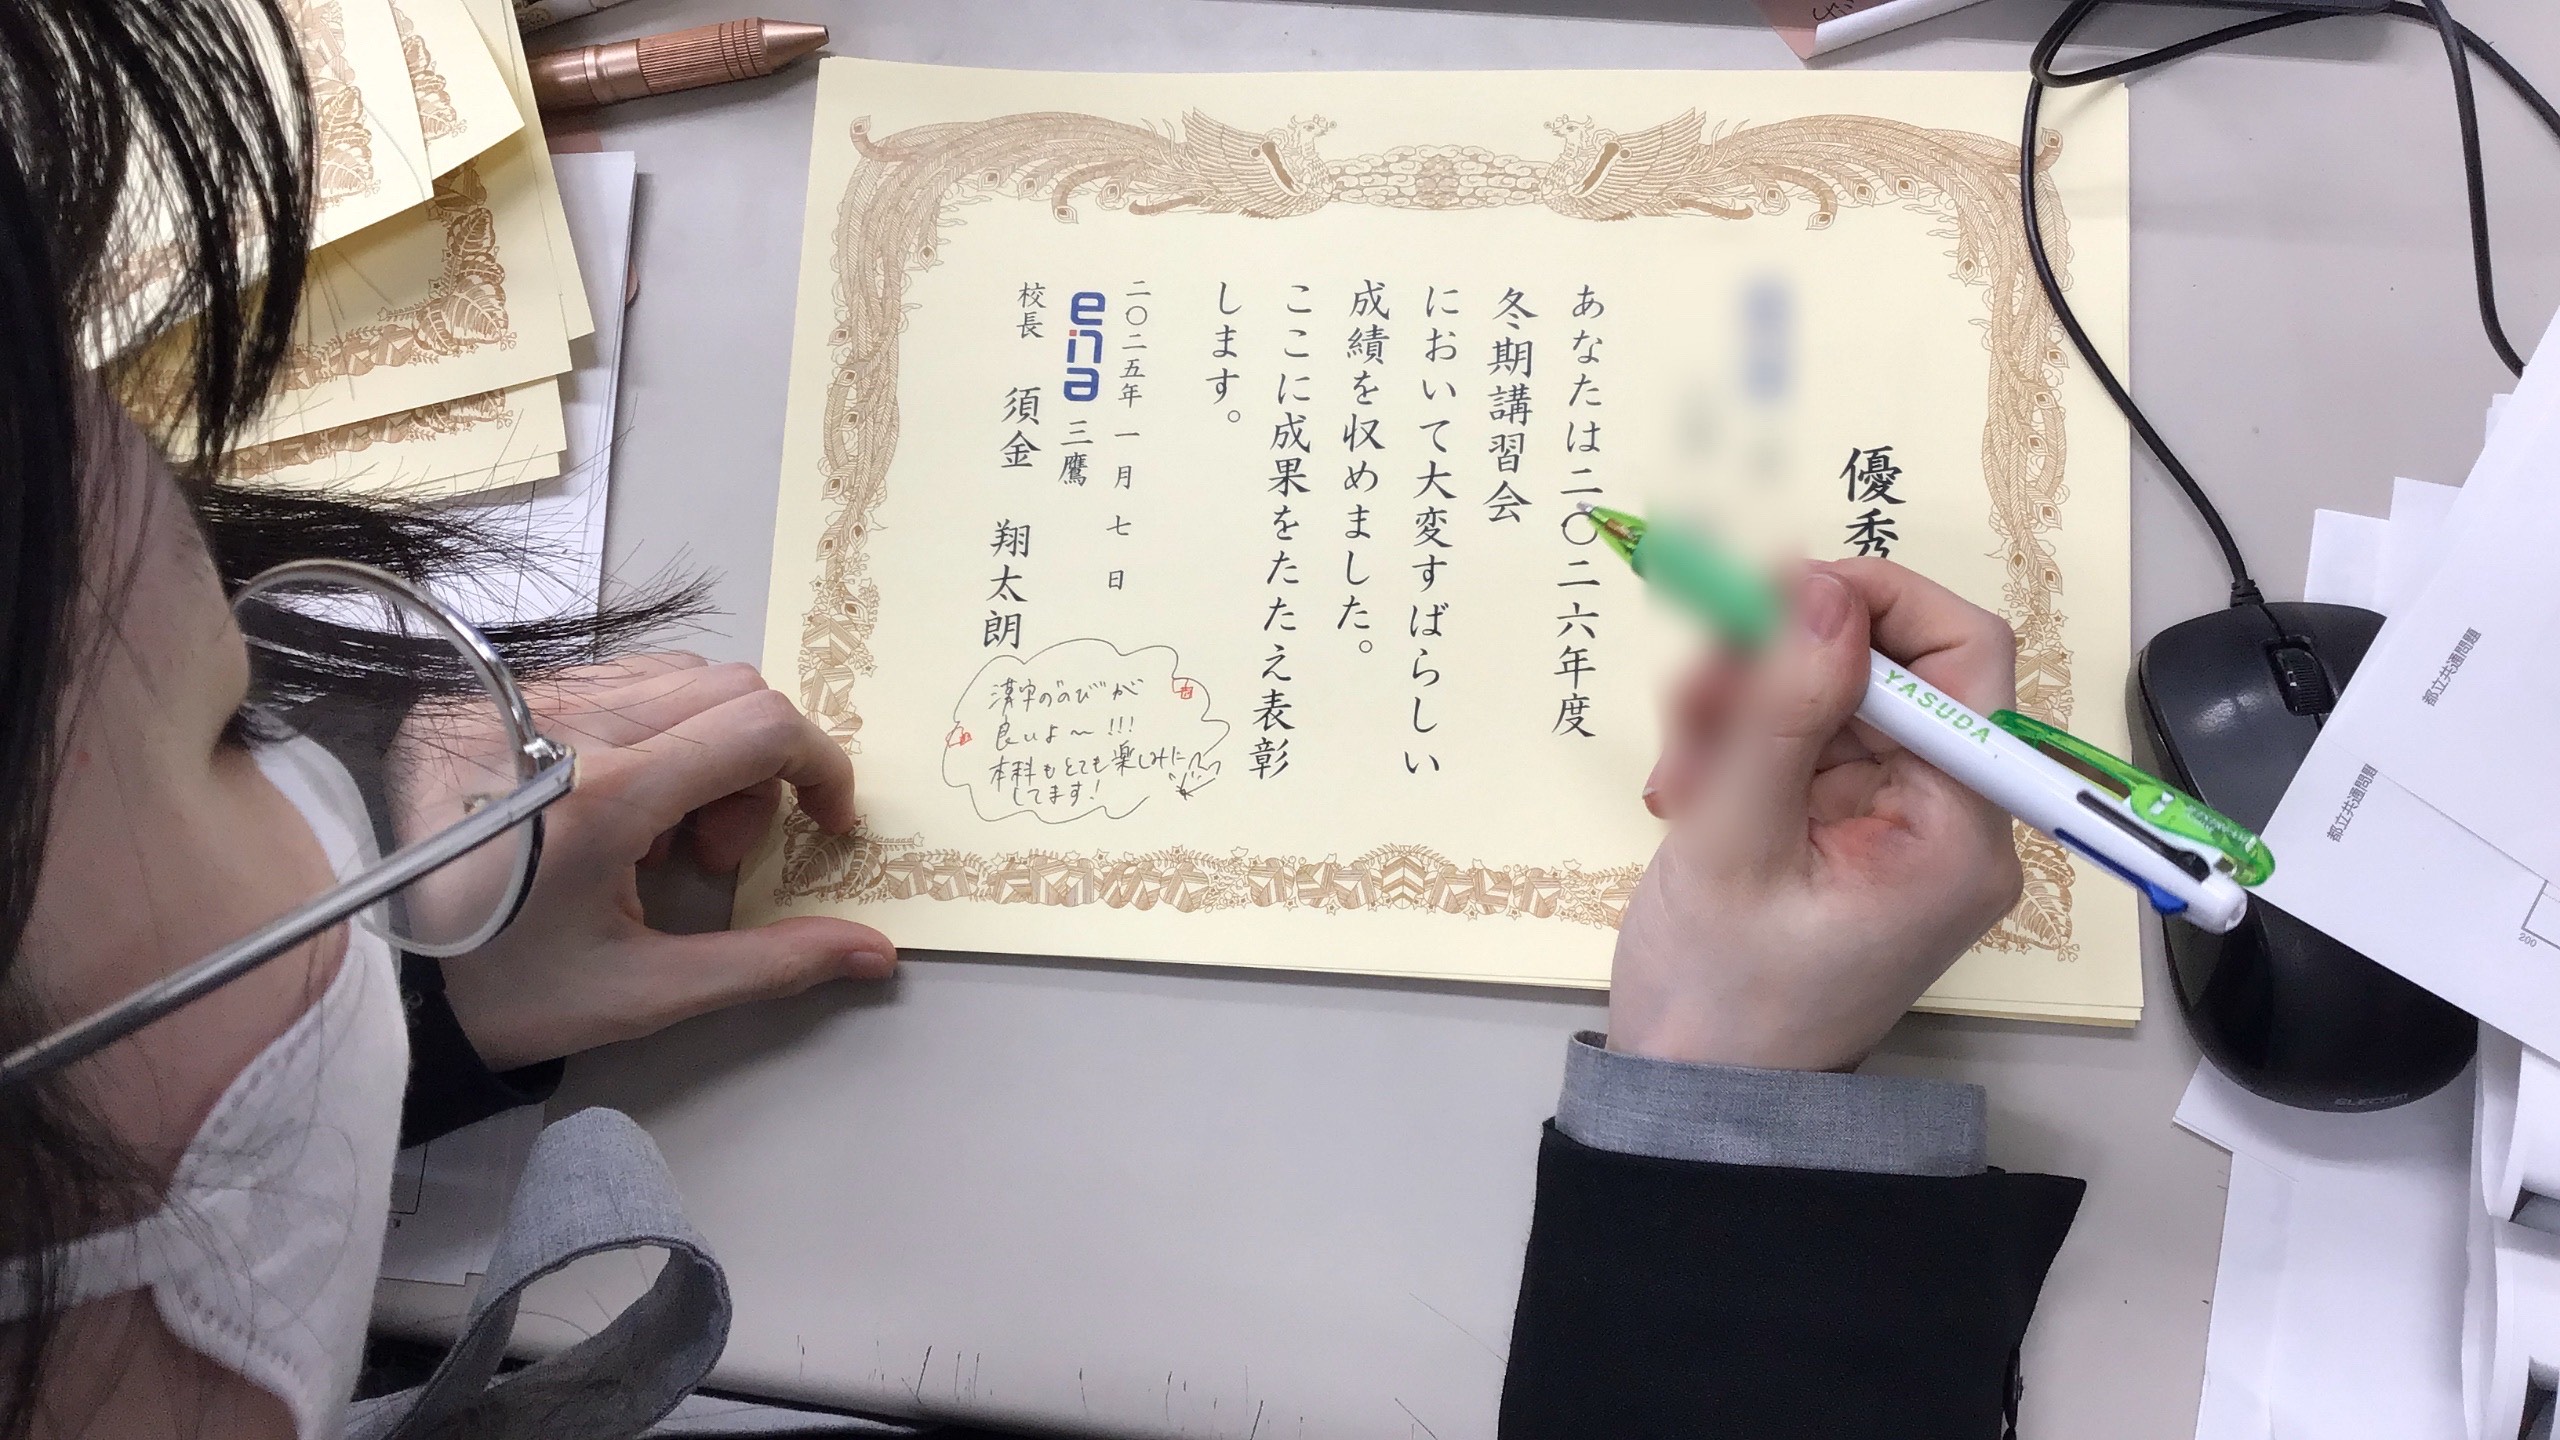 優秀
あなたは二〇二六年度
冬期講習会
において大変すばらしい
成績を収めました。
ここに成果をたたえ表彰
します。
二〇二五年 一月 七日
ena 三鷹
校長 須金 翔太朗
漢字の"のび"が
良いよ〜!!!
本科もとても楽しみに
してます!
YASUDA
ELECOM
都立共通問題
都立共通問題
200